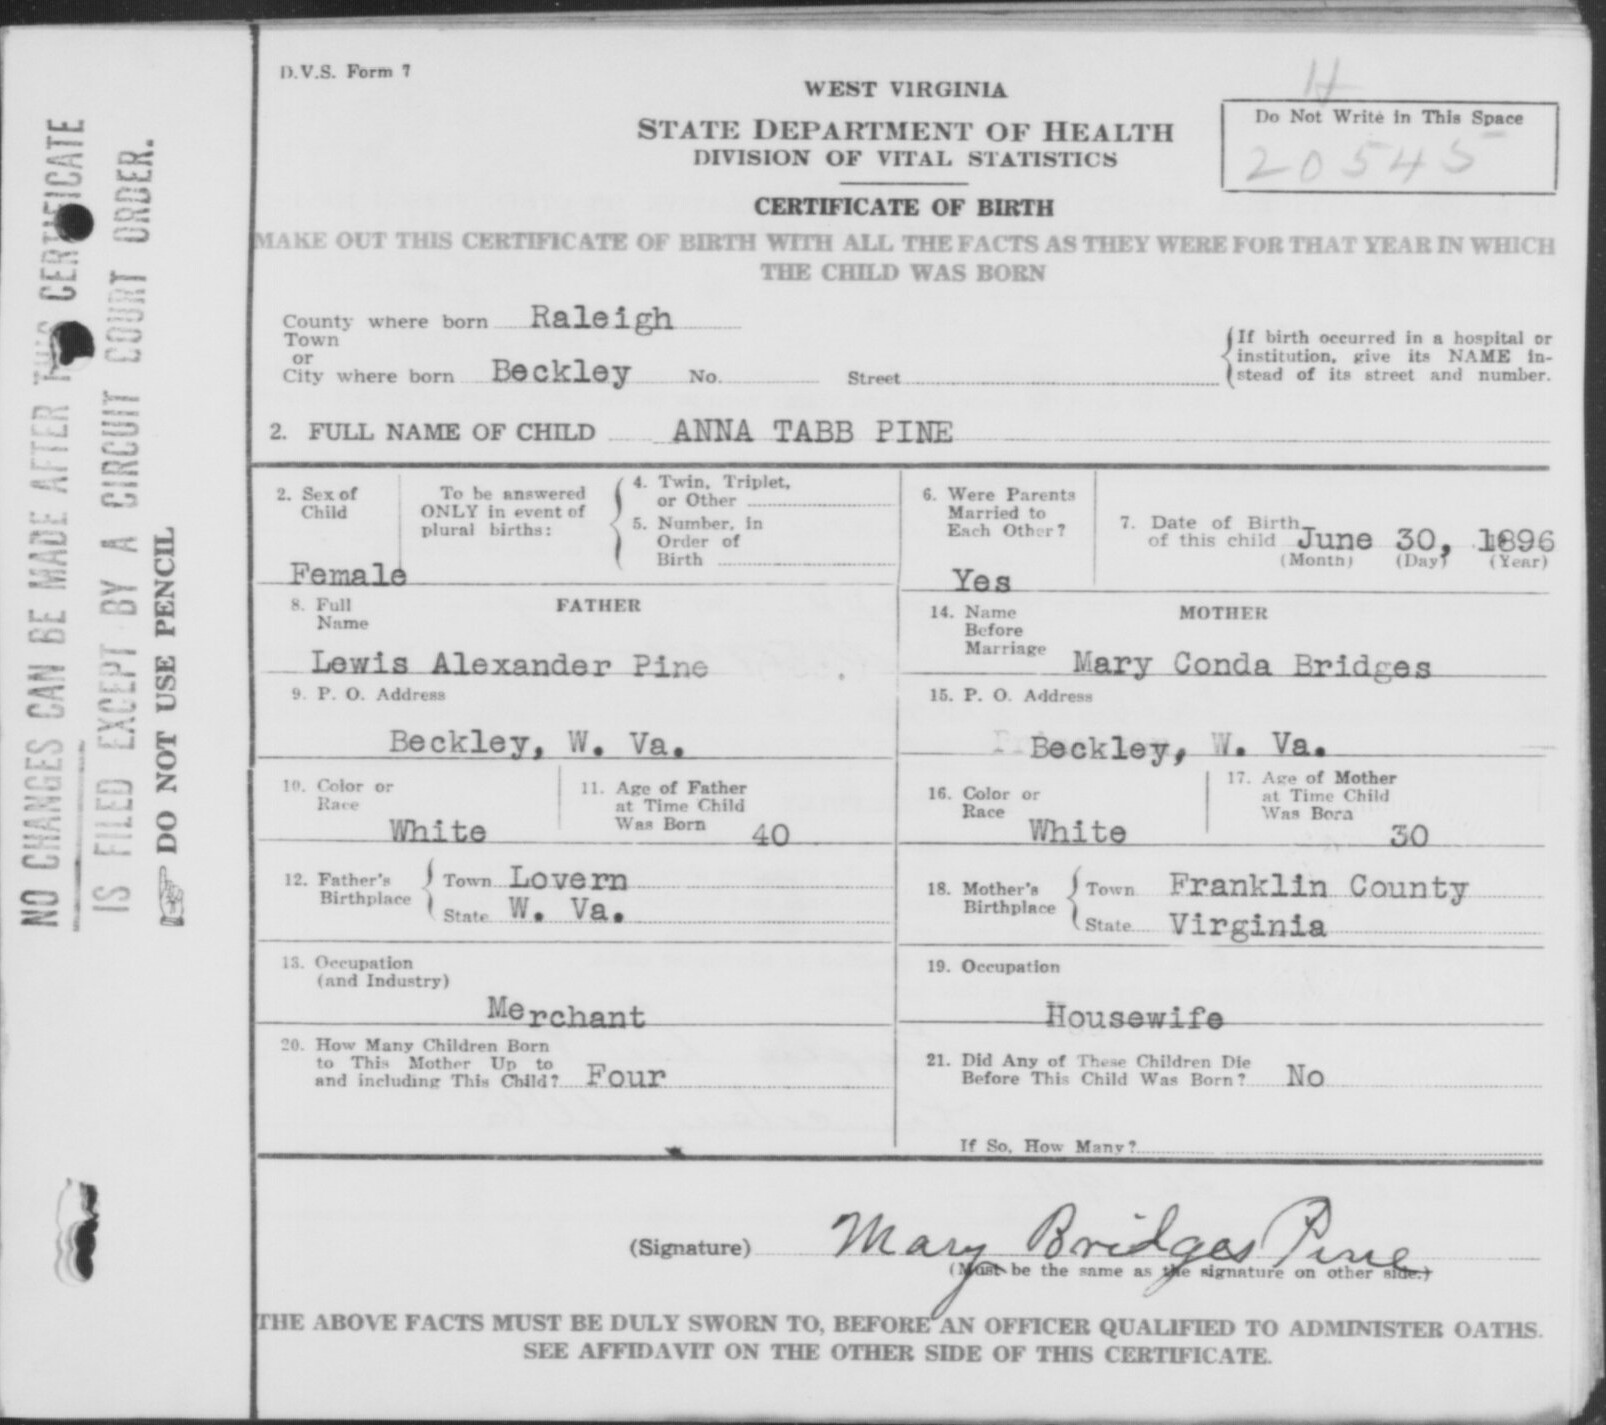 D.V.S. Form 7
WEST VIRGINIA
STATE DEPARTMENT OF HEALTH
DIVISION OF VITAL STATISTICS
H
Do Not Write in This Space
20545
CERTIFICATE OF BIRTH
MAKE OUT THIS CERTIFICATE OF BIRTH WITH ALL THE FACTS AS THEY WERE FOR THAT YEAR IN WHICH
THE CHILD WAS BORN
County where born Raleigh
Town
or
City where born Beckley No. Street
If birth occurred in a hospital or
institution, give its NAME in-
stead of its street and number.
2. FULL NAME OF CHILD ANNA TABB PINE
2. Sex of
Child
Female
To be answered
ONLY in event of
plural births:
4. Twin, Triplet,
or Other
5. Number, in
Order of
Birth
6. Were Parents
Married to
Each Other?
Yes
7. Date of Birth
of this child June 30, 1896
(Month) (Day) (Year)
8. Full
Name
FATHER
Lewis Alexander Pine
14. Name
Before
Marriage
MOTHER
Mary Conda Bridges
9. P. O. Address
Beckley, W. Va.
15. P. O. Address
Beckley, W. Va.
10. Color or
Race
White
11. Age of Father
at Time Child
Was Born 40
16. Color or
Race
White
17. Age of Mother
at Time Child
Was Born
30
12. Father's
Birthplace
Town Lovern
State W. Va.
18. Mother's
Birthplace
Town Franklin County
State Virginia
13. Occupation
(and Industry)
Merchant
19. Occupation
Housewife
20. How Many Children Born
to This Mother Up to
and including This Child? Four
21. Did Any of These Children Die
Before This Child Was Born? No
If So, How Many?
(Signature) Mary Bridges Pine
(Must be the same as the signature on other side.)
THE ABOVE FACTS MUST BE DULY SWORN TO, BEFORE AN OFFICER QUALIFIED TO ADMINISTER OATHS.
SEE AFFIDAVIT ON THE OTHER SIDE OF THIS CERTIFICATE.
NO CHANGES CAN BE MADE AFTER THIS CERTIFICATE
IS FILED EXCEPT BY A CIRCUIT COURT ORDER.
DO NOT USE PENCIL